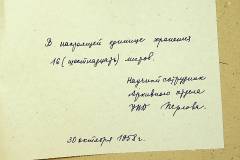 В настоящей единице хранения
16 (шестнадцать) листов.
Научный сотрудник
Архивного отдела
Перлова.
30 октября 1958 г.